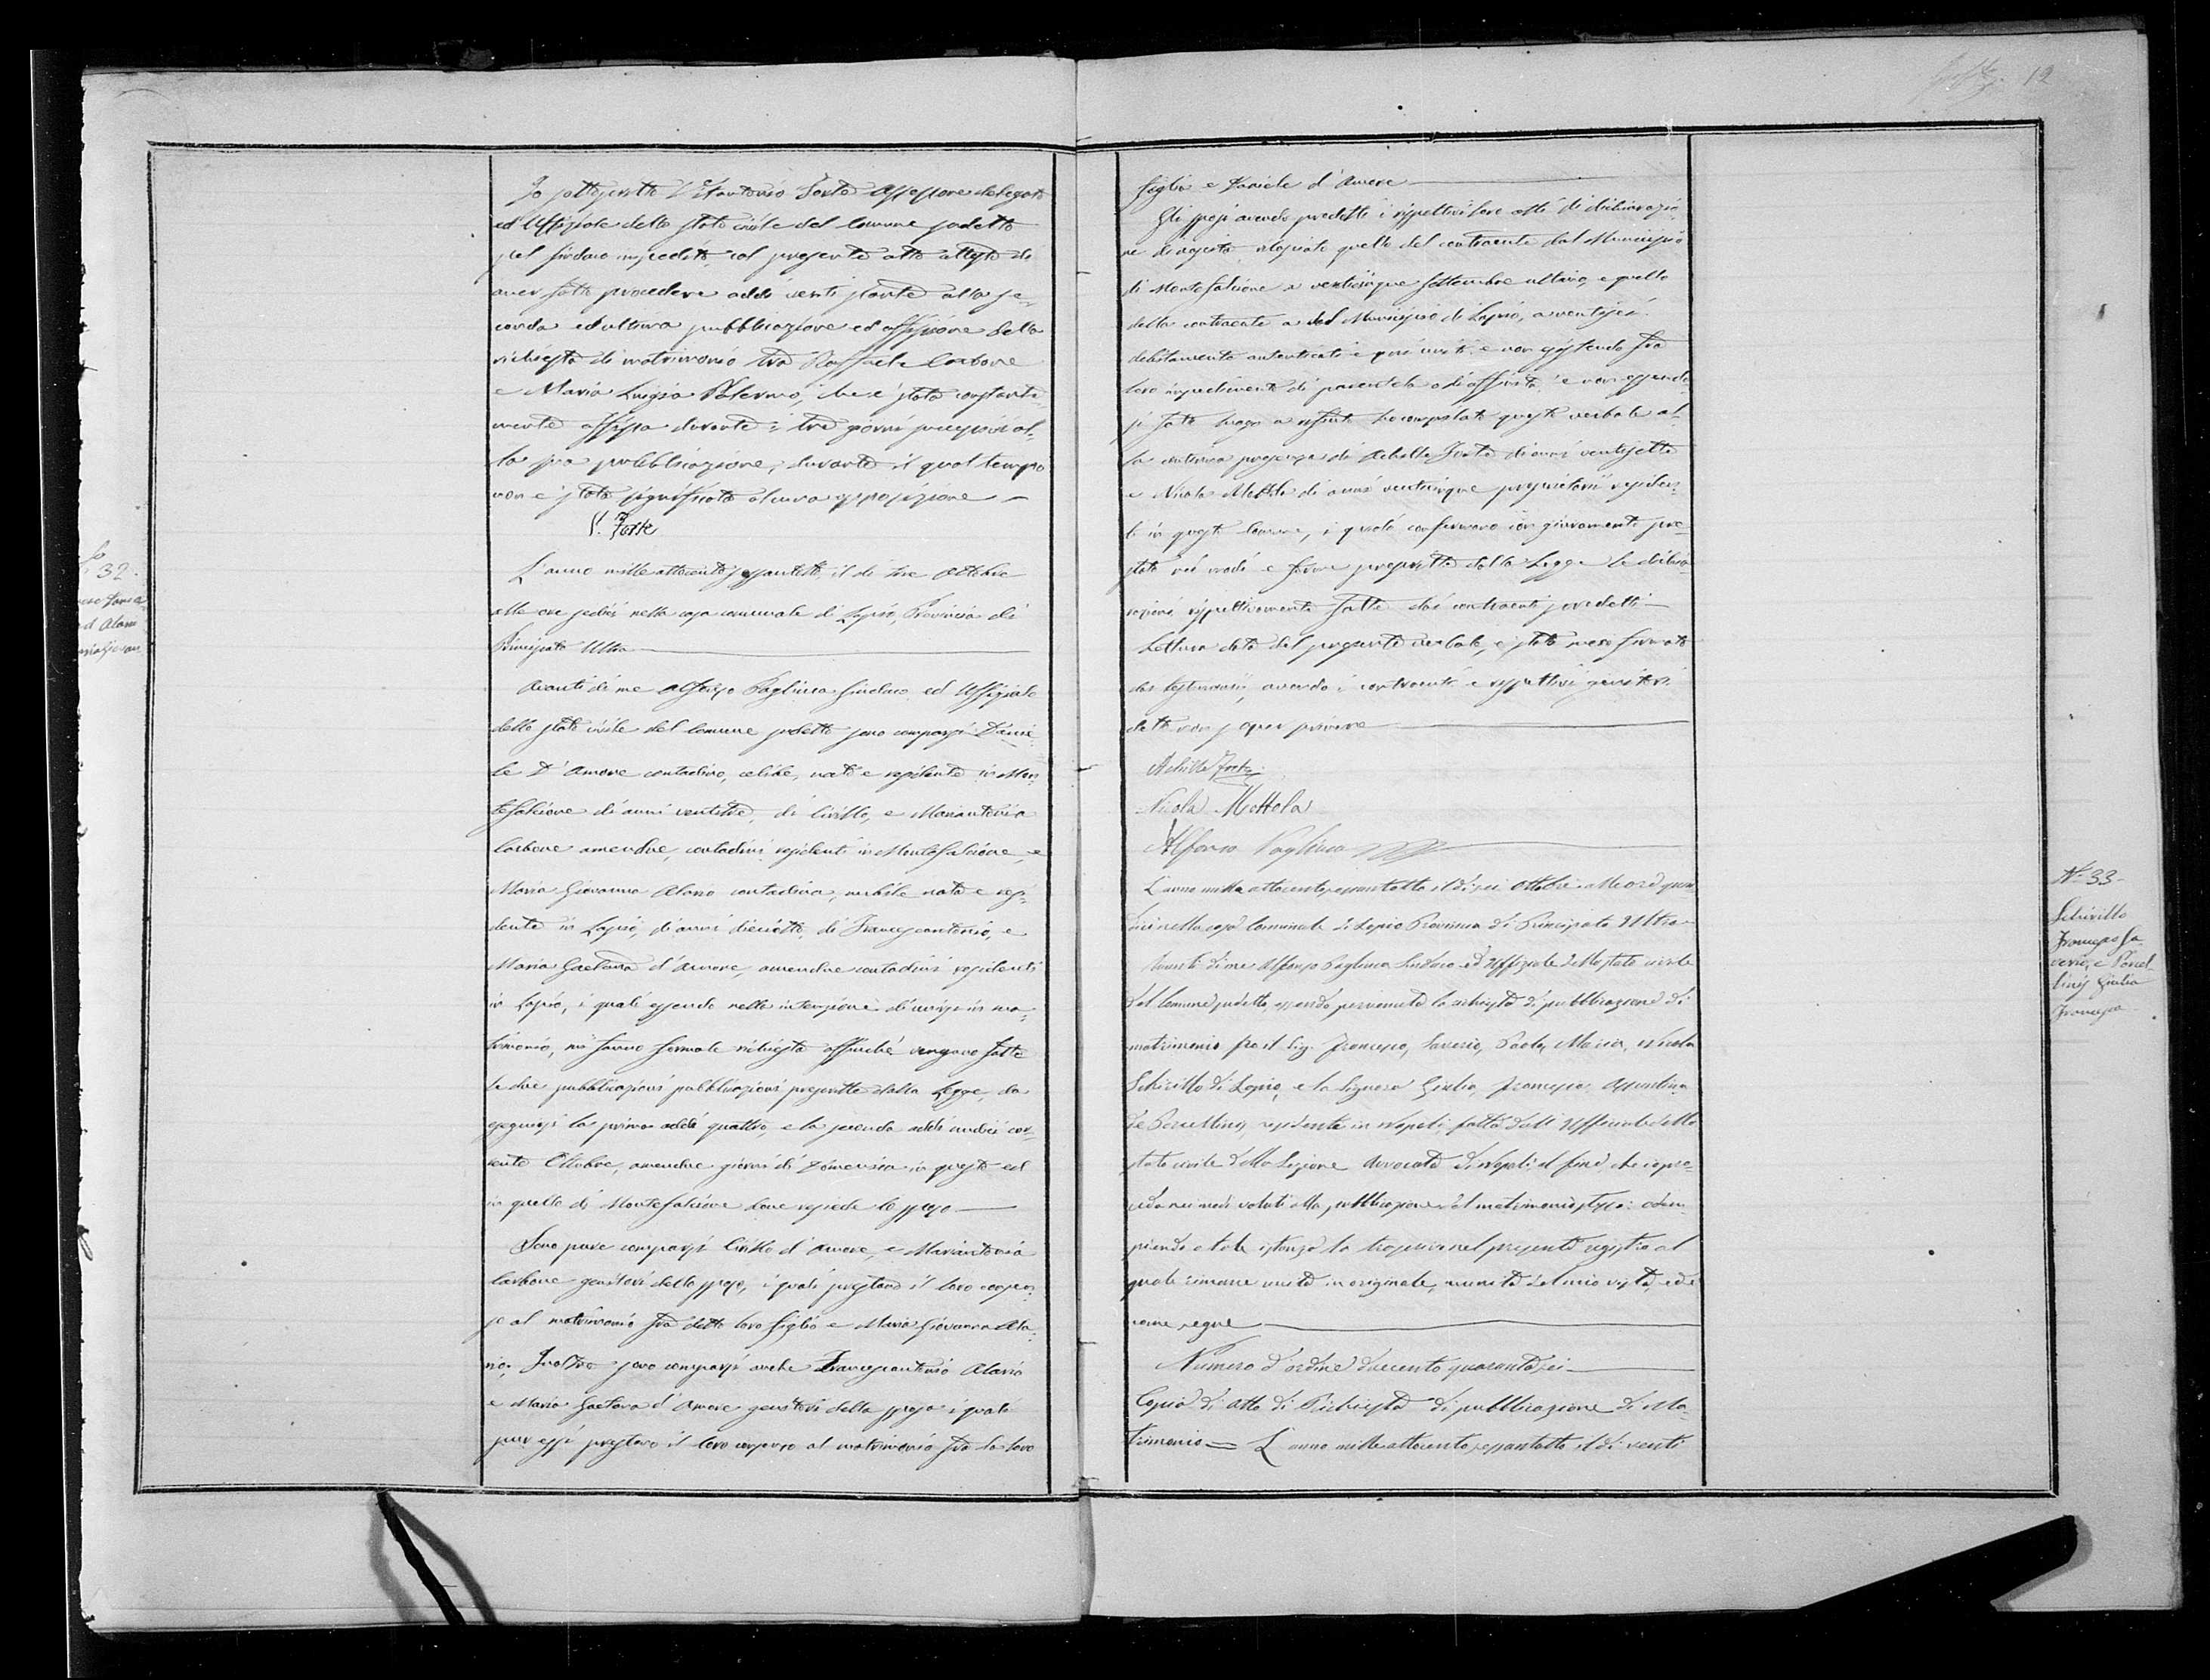 12
Io sottoscritto Vitantonio Forte Assessore delegato
ed Uffiziale dello stato civile del Comune sudetto
pel sindaco impedito, col presente atto attesto di
aver fatto procedere addì venti stante alla se-
conda ed ultima pubblicazione ed affissione della
richiesta di matrimonio tra Raffaele Carbone
e Maria Luigia Palermo, che è stata costante-
mente affissa durante i tre giorni successivi al-
la sua pubblicazione, durante il qual tempo
non è stata significata alcuna opposizione —
V. Forte
N. 32.
d'Alario
L'anno mille ottocento sessantotto il dì tre Ottobre
alle ore sedici nella casa comunale di Lapio, Provincia di
Principato Ultra
Avanti di me Alfonso Pagliuca Sindaco ed Uffiziale
dello stato civile del Comune sudetto sono comparsi Danie-
le D'Amore contadino, celibe, nato e residente in Mon-
tefalcione di anni ventitre, di Cirillo, e Mariantonia
Carbone amendue, contadini residenti in Montefalcione, e
Maria Giovanna Alario contadina, nubile nata e resi-
dente in Lapio, di anni dieciotto, di Francescantonio, e
Maria Gaetana d'Amore, amendue contadini residenti
in Lapio, i quali essendo nella intenzione di unirsi in ma-
trimonio, mi fanno formale richiesta affinchè vengano fatte
le due pubblicazioni pubblicazioni prescritte dalla Legge, da
eseguirsi la prima addì quattro, e la seconda addì undici cor-
rente Ottobre, amendue giorni di Domenica in questo ed
in quello di Montefalcione dove risiede lo sposo —
Sono pure comparsi Cirillo d'Amore, e Mariantonia
Carbone genitori dello sposo, i quali prestano il loro consen-
so al matrimonio tra detto loro figlio e Maria Giovanna Ala-
rio; Inoltre sono comparsi anche Francescantonio Alario
e Maria Gaetana d'Amore genitori della sposa i quali
pur essi prestano il loro consenso al matrimonio tra la loro
figlia e Daniele d'Amore
Gli sposi avendo prodotti i rispettivi loro atti di dichiarazio-
ne di nascita, rilasciato quello del contraente dal Municipio
di Montefalcione a venticinque Settembre ultimo, e quello
della contraente a dal Municipio di Lapio, a ventisei
debitamente autenticati e qui uniti e non esistendo fra
loro impedimento di parentela o di affinità, e non essendo-
si fatto luogo a rifiuto ho compilato questo verbale al-
la continua presenza di Achille Forte di anni ventisette
e Nicola Mottola di anni venticinque proprietarii residen-
ti in questo Comune, i quali confermano con giuramento pre-
stato nei modi e forme prescritte dalla Legge le dichia-
razioni rispettivamente fatte dai contraenti sudetti —
Lettura data del presente verbale, è stato meco firmato
dai testimonii, avendo i contraenti e rispettivi genitori
detto non saper scrivere
Achille Forte
Nicola Mottola
Alfonso Pagliuca
N. 33.
Schirillo
Francesco Sa-
verio, e Porcel-
lini Giulia
Francesca
L'anno mille ottocentosessantotto il dì sei Ottobre alle ore quin-
dici nella casa Comunale di Lapio Provincia di Principato Ultra
Avanti di me Alfonso Pagliuca Sindaco ed Uffiziale dello stato civile
del Comune sudetto, essendo pervenuta la richiesta di pubblicazione di
matrimonio fra il Sig. Francesco, Saverio, Paolo, Maria, Nicola
Schirillo di Lapio, e la Signora Giulia, Francesca, Assuntina
de Porcellinis, residente in Napoli, fatta dall'Uffiziale dello
stato civile della Sezione Avvocata di Napoli al fine che si pro-
ceda nei modi voluti alla pubblicazione del matrimonio stesso: adem-
piendo a tale istanza la trascrivo nel presente registro al
quale rimane unita in originale, munita del mio visto, ed è
come segue
Numero d'ordine duecento quarantasei
Copia di atto di Richiesta di pubblicazione di Ma-
trimonio — L'anno mille ottocento sessantotto il dì venti